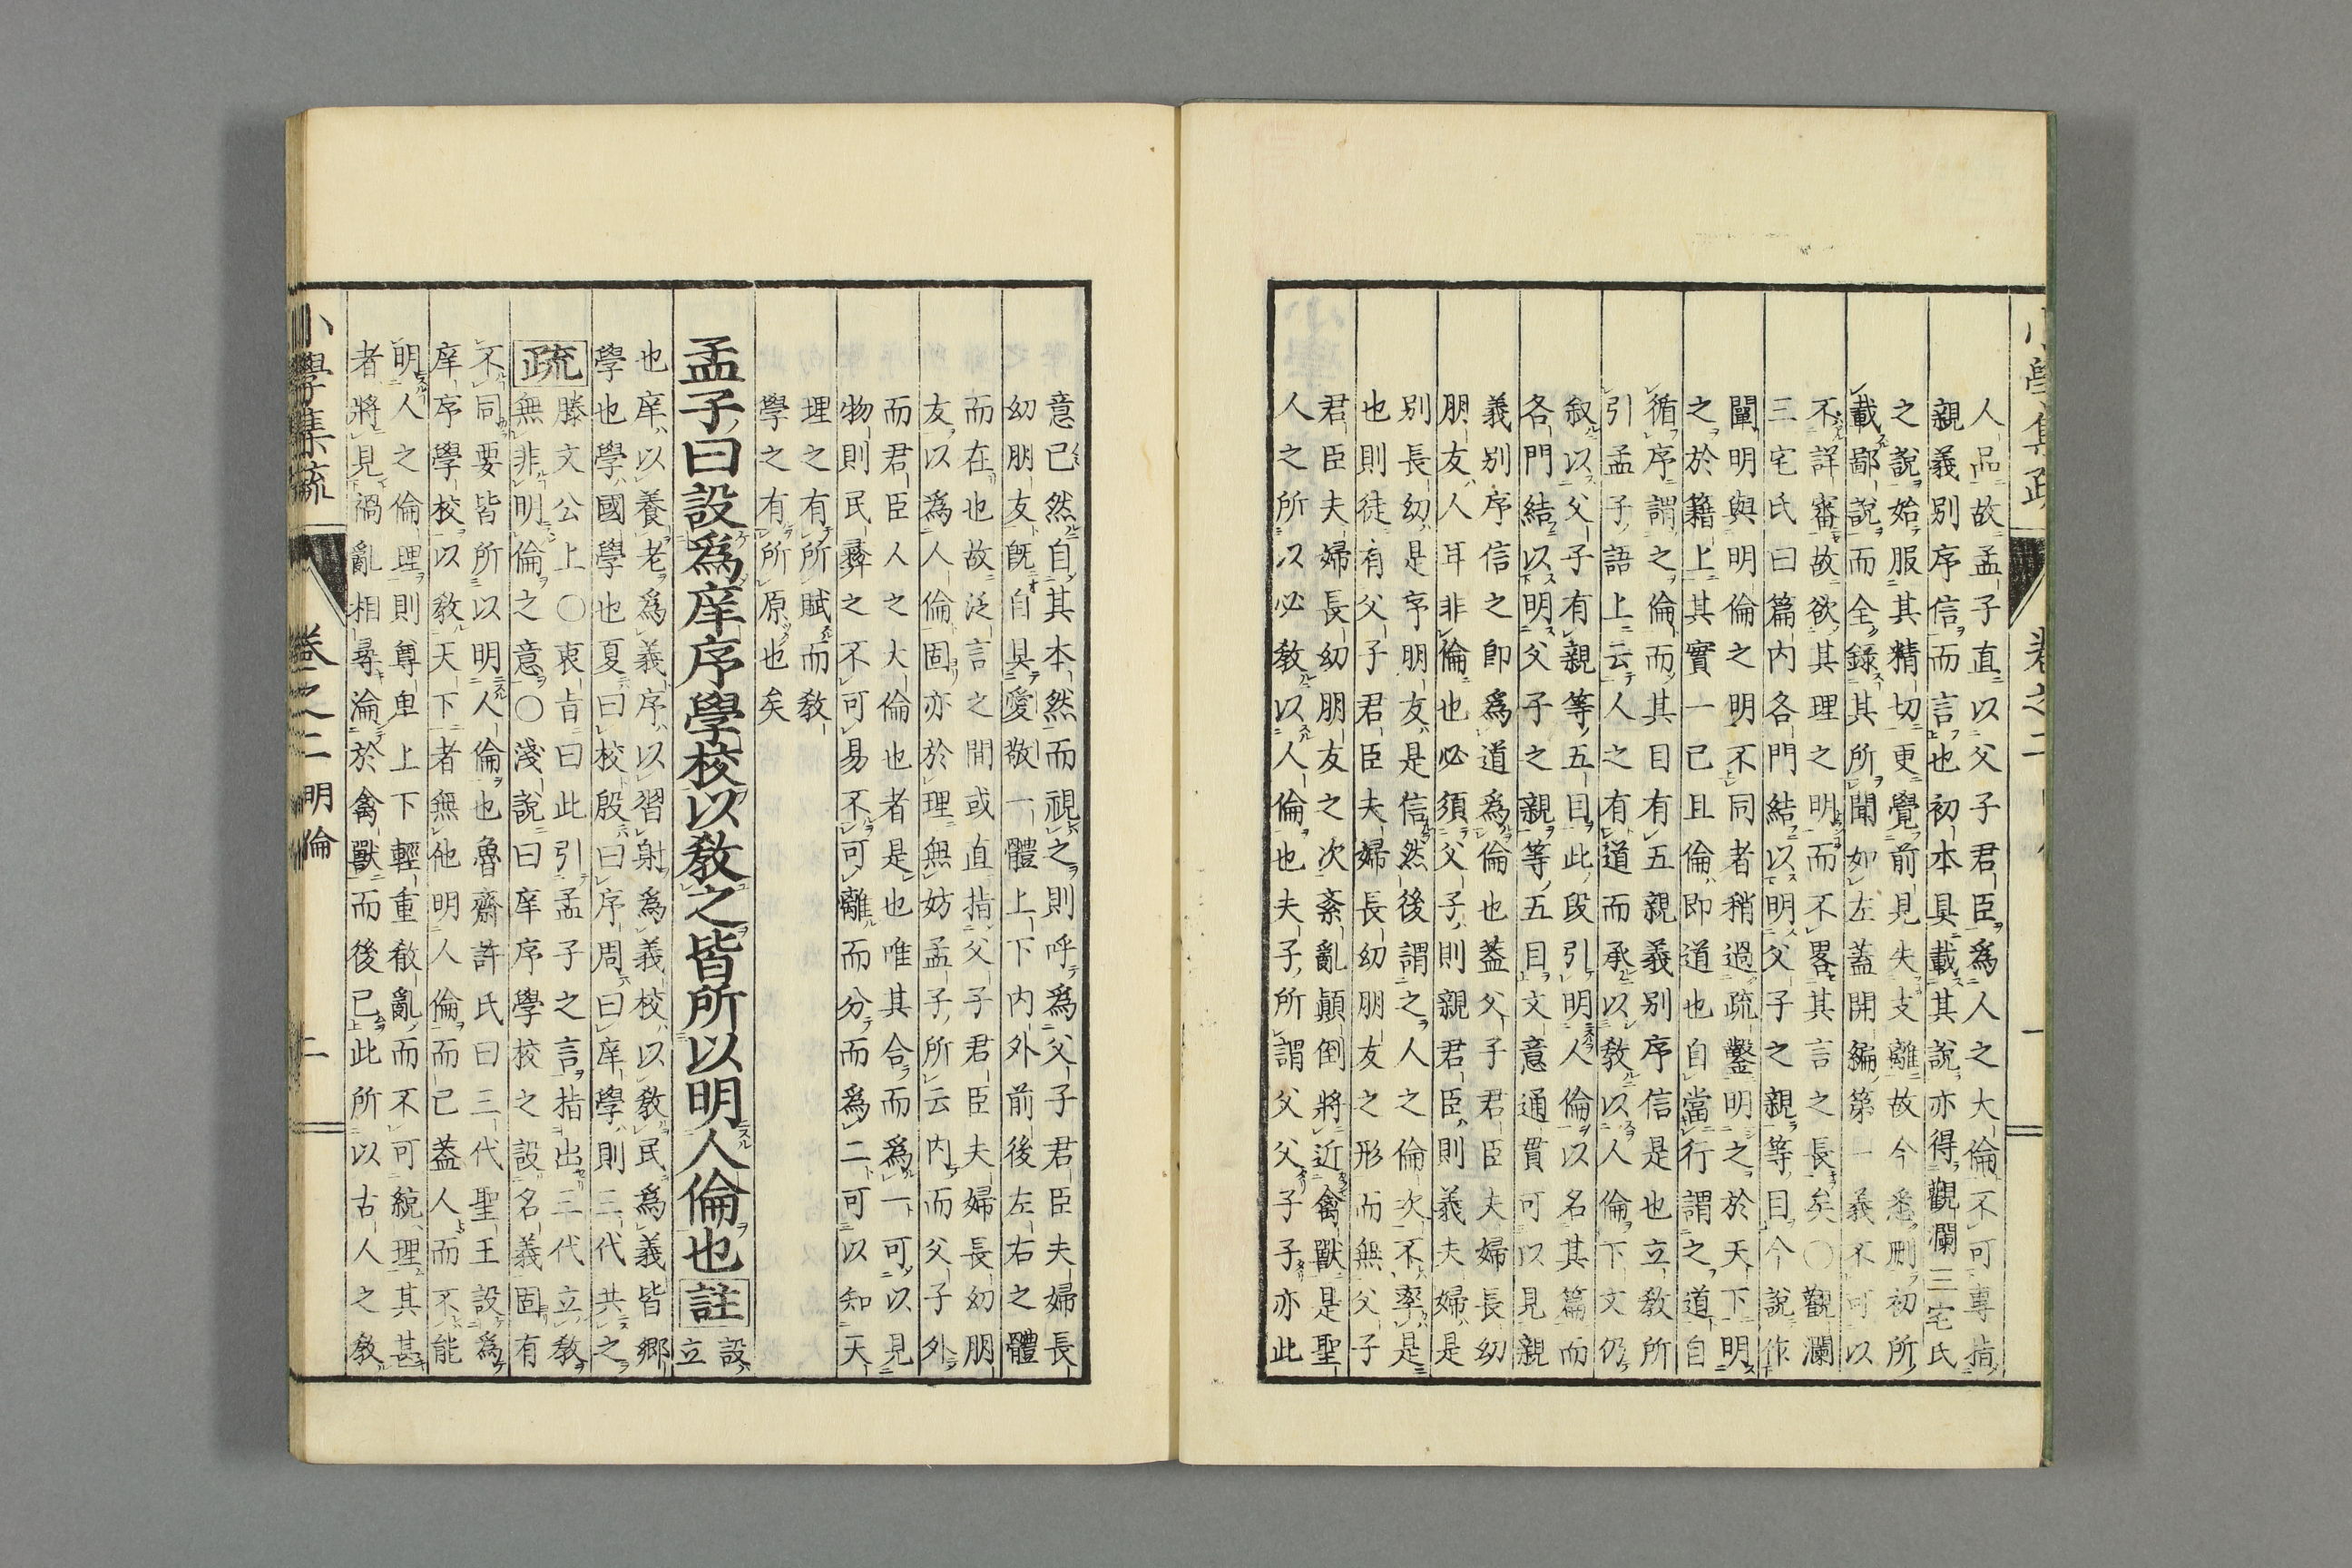 人品故孟子直以父子君臣爲人之大倫不可專指
親義別序信而言也初本具載其說亦得觀瀾三宅氏
之說始服其精切更覺前見失支離故今悉刪初所
載鄙說而全錄其所聞如左蓋開編第一義不可以
不詳審故欲其理之明而不畧其言之長矣〇觀瀾
三宅氏曰篇内各門結以明父子之親等目今說作
闡明與明倫之明不同者稍過疏鑿明之於天下明
之於籍上其實一已且倫卽道也自當行謂之道自
循序謂之倫而其目有五親義別序信是也立教所
引孟子語上云人之有道而承以教以人倫下文仍
叙以父子有親等五目此段引明人倫以名其篇而
各門結以明父子之親等五目文意通貫可以見親
義別序信之卽爲道爲倫也蓋父子君臣夫婦長幼
朋友人耳非倫也必須父子則親君臣則義夫婦是
別長幼是序朋友是信然後謂之人之倫次不率是
也則徒有父子君臣夫婦長幼朋友之形而無父子
君臣夫婦長幼朋友之次紊亂顚倒將近禽獸是聖
人之所以必教以人倫也夫子所謂父父子子亦此
意已然自其本然而視之則呼爲父子君臣夫婦長
幼朋友既自具愛敬一體上下内外前後左右之體
而在也故泛言之間或直指父子君臣夫婦長幼朋
友以爲人倫固亦於理無妨孟子所云内而父子外
而君臣人之大倫也者是也唯其合而爲一可以見
物則民彝之不可易不可離而分而爲二可以知天
理之有所賦而教
學之有所原也矣
孟子曰設爲庠序學校以教之皆所以明人倫也 註 設
立
也庠以養老爲義序以習射爲義校以教民爲義皆鄉
學也學國學也夏曰校殷曰序周曰庠學則三代共之
疏 滕文公上〇衷旨曰此引孟子之言指出三代立教
無非明倫之意〇淺說曰庠序學校之設名義固有
不同要皆所以明人倫也魯齋許氏曰三代聖王設爲
庠序學校以教天下者無他明人倫而已蓋人而不能
明人之倫理則尊卑上下輕重敘亂而不可統理其甚
者將見禍亂相尋淪於禽獸而後已此所以古人之教
小學集疏 卷之二 明倫 二